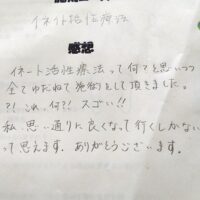 イネート活性療法
感想
イネート活性療法って何?と思いつつ
全てゆだねて施術をして頂きました。
?!これ、何?! スゴい!!
私、思い通りに良くなって行くしかない
って思えます。ありがとうございます。